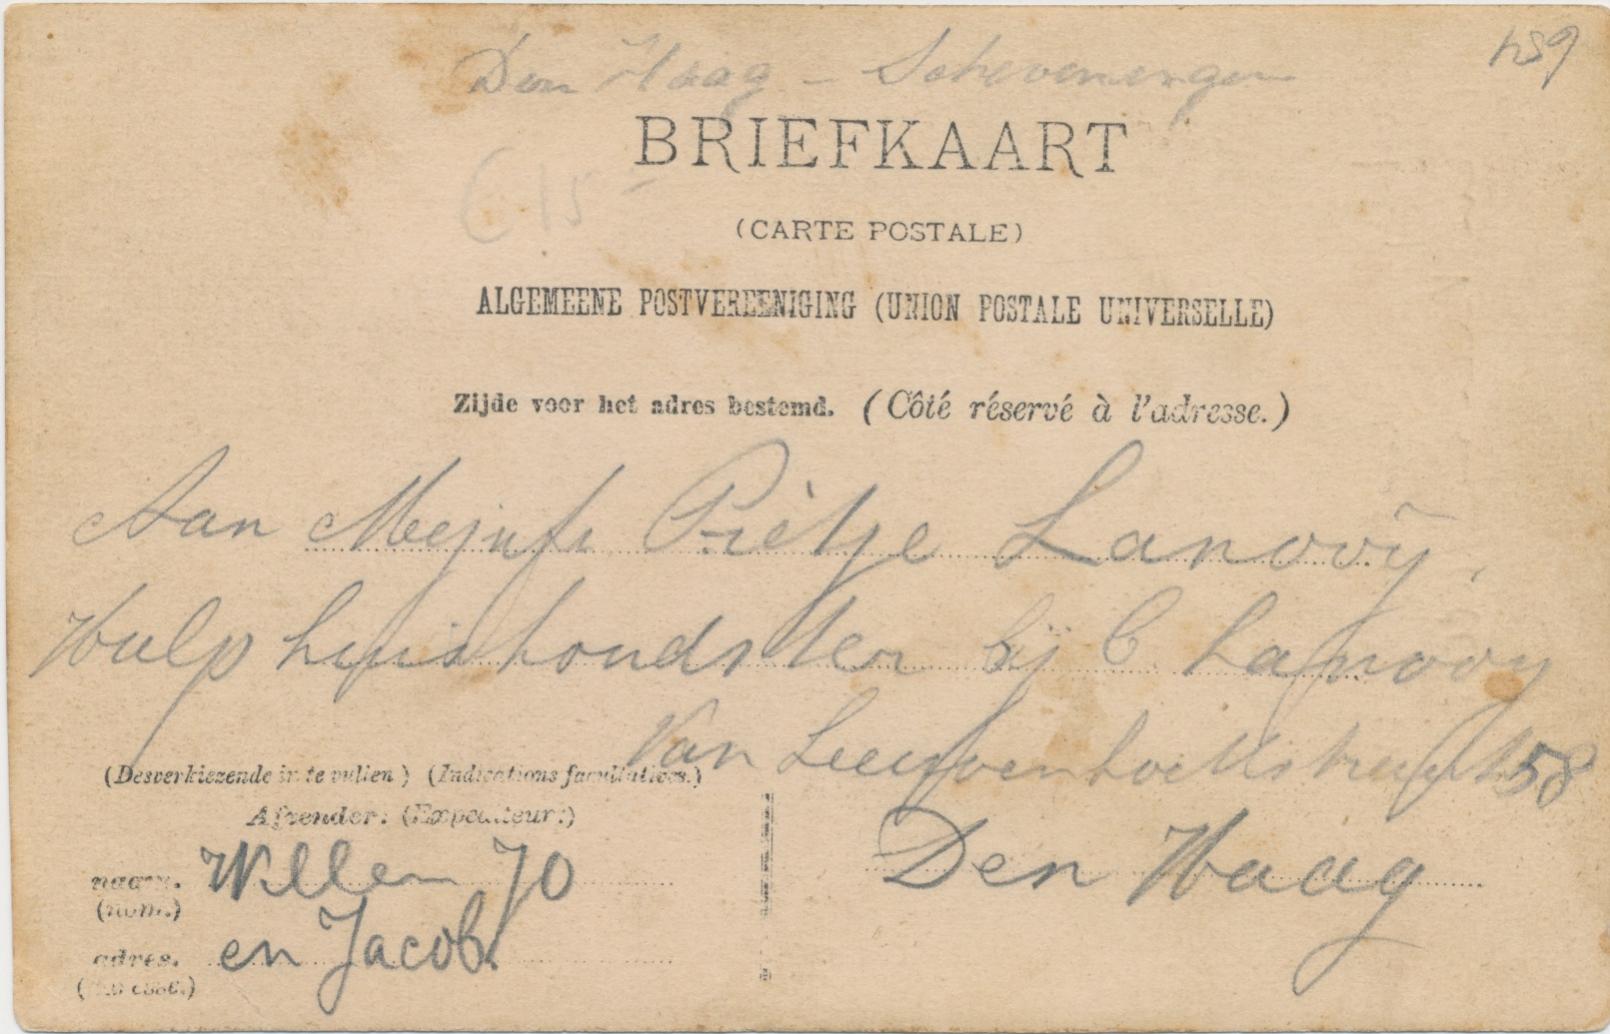 Den Haag - Scheveningen
BRIEFKAART
15
(CARTE POSTALE)
ALGEMEENE POSTVEREENIGING (UNION POSTALE UNIVERSELLE)
Zijde voor het adres bestemd. (Côté réservé à l'adresse.)
Aan Mejufr Piètje Lanooÿ.
Hulp huishoudster bij C. Lanooy
Van Leeuwenhoekstraat 158
(Desverkiezende in te vullen) (Indications facultatives.)
Afzender: (Expéditeur:)
Den Haag
naam. Willem Jo
(nom.)
adres. en Jacob.